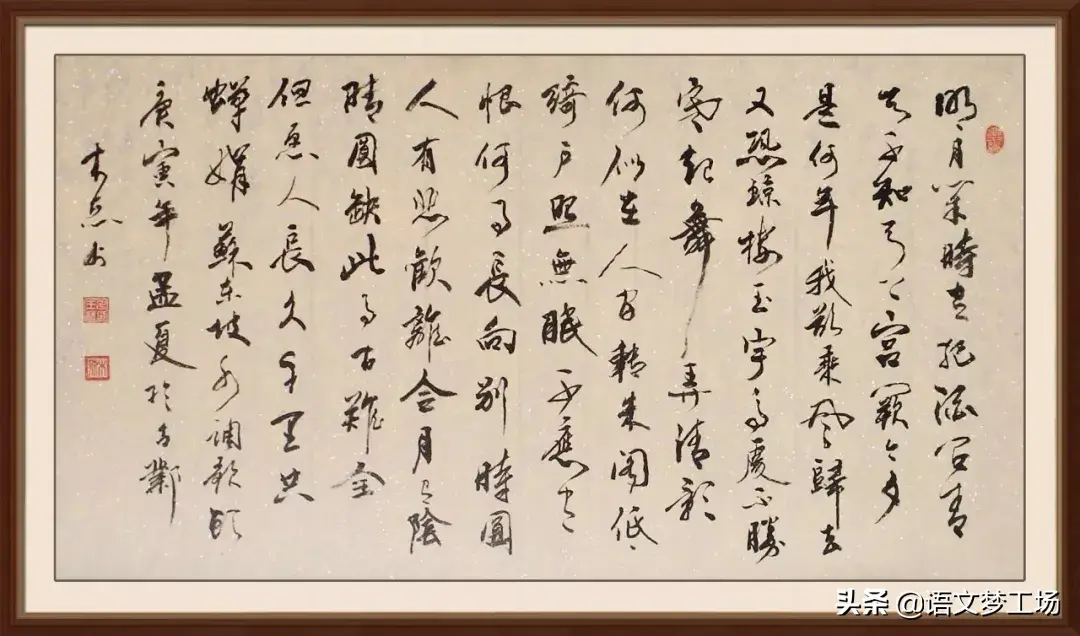 明月幾時有把酒問青
天不知天上宮闕今夕
是何年我欲乘風歸去
又恐琼樓玉宇高處不勝
寒起舞弄清影
何似在人間轉朱閣低
綺户照無眠不應有
恨何事長向别時圓
人有悲歡離合月有陰
晴圓缺此事古難全
但愿人長久千里共
嬋娟蘇東坡水調歌頭
庚寅年孟夏於
书
头条 @语文梦工场